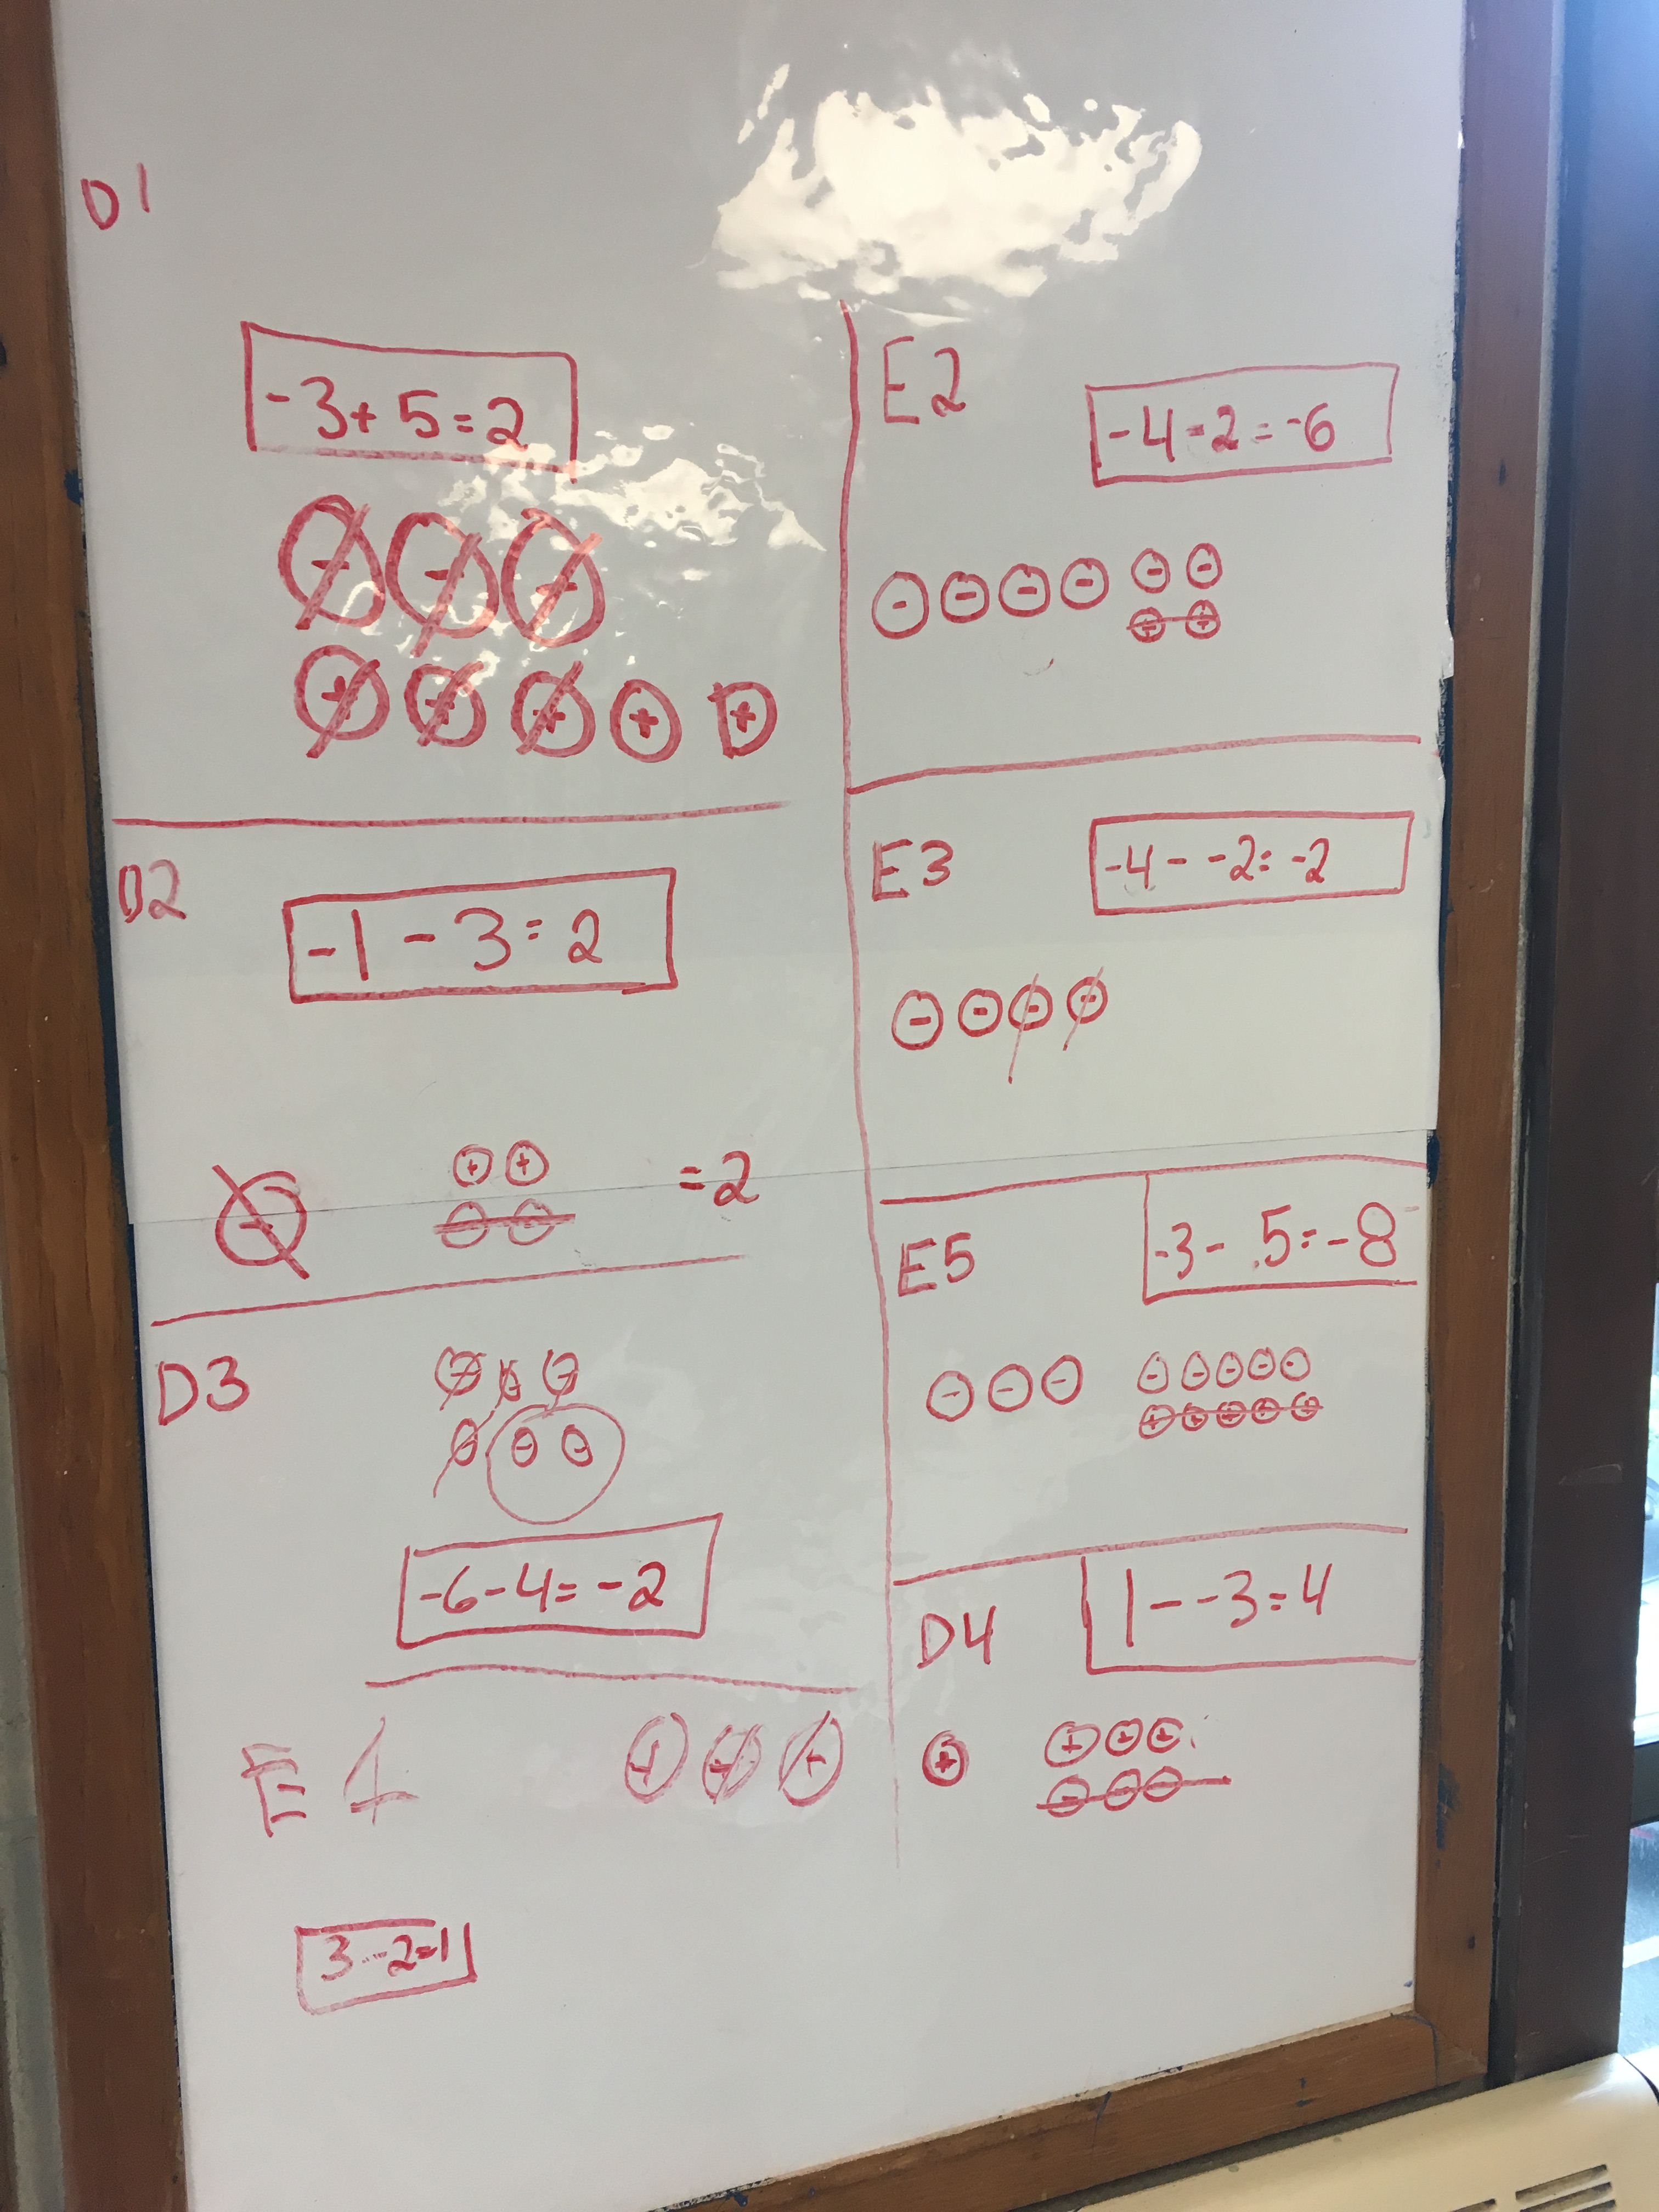 D1
-3+5=2
- - -
+ + + + +
D2
-1 - 3 = 2
+ +
- - - = 2
D3
- -
-6-4= -2
E4
+ + +
3--2=1
E2
-4-2=-6
- - - - - -
+ +
E3
-4- -2= -2
- - - -
E5
-3- 5=-8
- - - - - - - -
+ + + + +
D4
1- -3=4
+ + + +
- - -